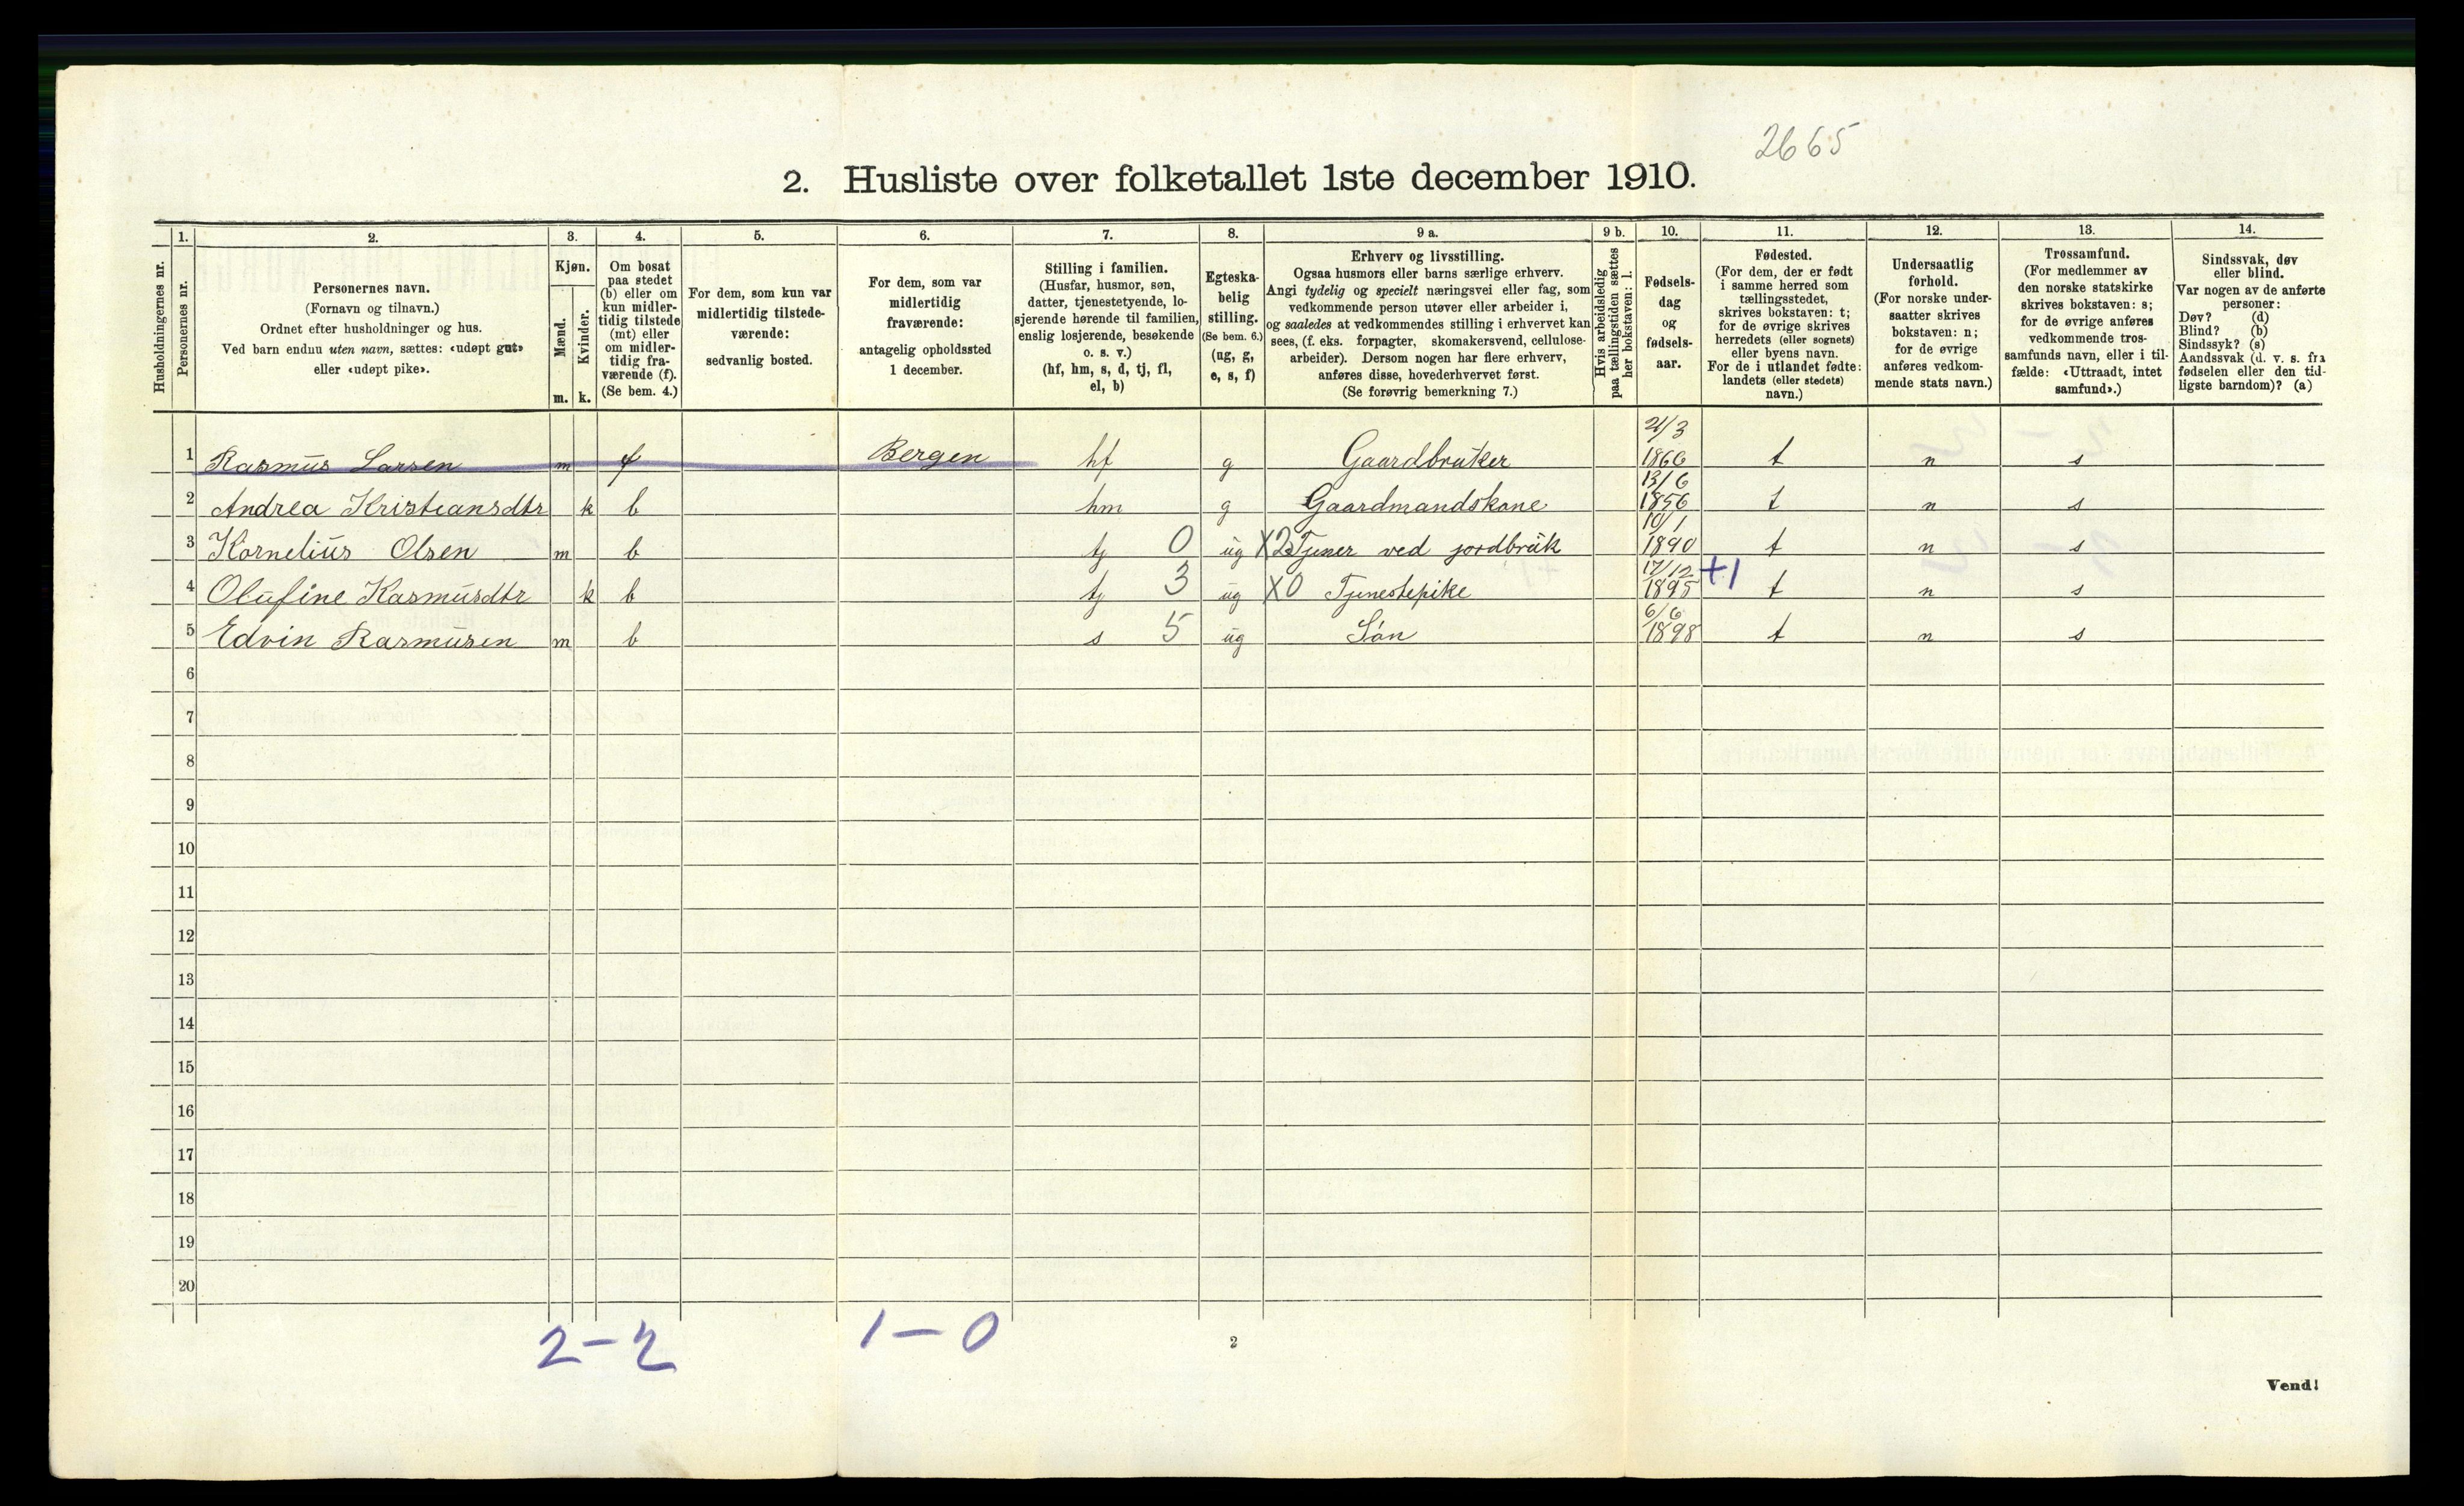 2665
2. Husliste over folketallet 1ste december 1910.
Husholdningernes nr.
1.
Personernes nr.
2.
Personernes navn.
(Fornavn og tilnavn.)
Ordnet efter husholdninger og hus.
Ved barn endnu uten navn, sættes: «udøpt gut»
eller «udøpt pike».
3.
Kjøn.
Mænd.
Kvinder.
m. k.
4.
Om bosat
paa stedet
(b) eller om
kun midler-
tidig tilstede
(mt) eller
om midler-
tidig fra-
værende (f).
(Se bem. 4.)
5.
For dem, som kun var
midlertidig tilstede-
værende:
sedvanlig bosted.
6.
For dem, som var
midlertidig
fraværende:
antagelig opholdssted
1 december.
7.
Stilling i familien.
(Husfar, husmor, søn,
datter, tjenestetyende, lo-
sjerende hørende til familien,
enslig losjerende, besøkende
o. s. v.)
(hf, hm, s, d, tj, fl,
el, b)
8.
Egteska-
belig
stilling.
(Se bem. 6.)
(ug, g,
e, s, f)
9 a.
Erhverv og livsstilling.
Ogsaa husmors eller barns særlige erhverv.
Angi tydelig og specielt næringsvei eller fag, som
vedkommende person utøver eller arbeider i,
og saaledes at vedkommendes stilling i erhvervet kan
sees, (f. eks. forpagter, skomakersvend, cellulose-
arbeider). Dersom nogen har flere erhverv,
anføres disse, hovederhvervet først.
(Se forøvrig bemerkning 7.)
9 b.
Hvis arbeidsledig
paa tællingstiden sættes
her bokstaven: l.
10.
Fødsels-
dag
og
fødsels-
aar.
11.
Fødested.
(For dem, der er født
i samme herred som
tællingsstedet,
skrives bokstaven: t;
for de øvrige skrives
herredets (eller sognets)
eller byens navn.
For de i utlandet fødte:
landets (eller stedets)
navn.)
12.
Undersaatlig
forhold.
(For norske under-
saatter skrives
bokstaven: n;
for de øvrige
anføres vedkom-
mende stats navn.)
13.
Trossamfund.
(For medlemmer av
den norske statskirke
skrives bokstaven: s;
for de øvrige anføres
vedkommende tros-
samfunds navn, eller i til-
fælde: «Uttraadt, intet
samfund».)
14.
Sindssvak, døv
eller blind.
Var nogen av de anførte
personer:
Døv? (d)
Blind? (b)
Sindssyk? (s)
Aandssvak (d. v. s. fra
fødselen eller den tid-
ligste barndom)? (a)
1 Rasmus Larsen m f Bergen hf g Gaardbruker 21/3 1866 t n s
2 Andrea Kristiansdtr k b hm g Gaardmandskone 13/6 1856 t n s
3 Kornelius Olsen m b tj 0 ug X2 Tjener ved jordbruk 10/1 1890 t n s
4 Olufine Rasmusdtr k b tj 3 ug X0 Tjenestepike 17/12 1895 +1 t n s
5 Edvin Rasmusen m b s 5 ug Søn 6/6 1898 t n s
6
7
8
9
10
11
12
13
14
15
16
17
18
19
20
2-2 1-0
2
Vend!